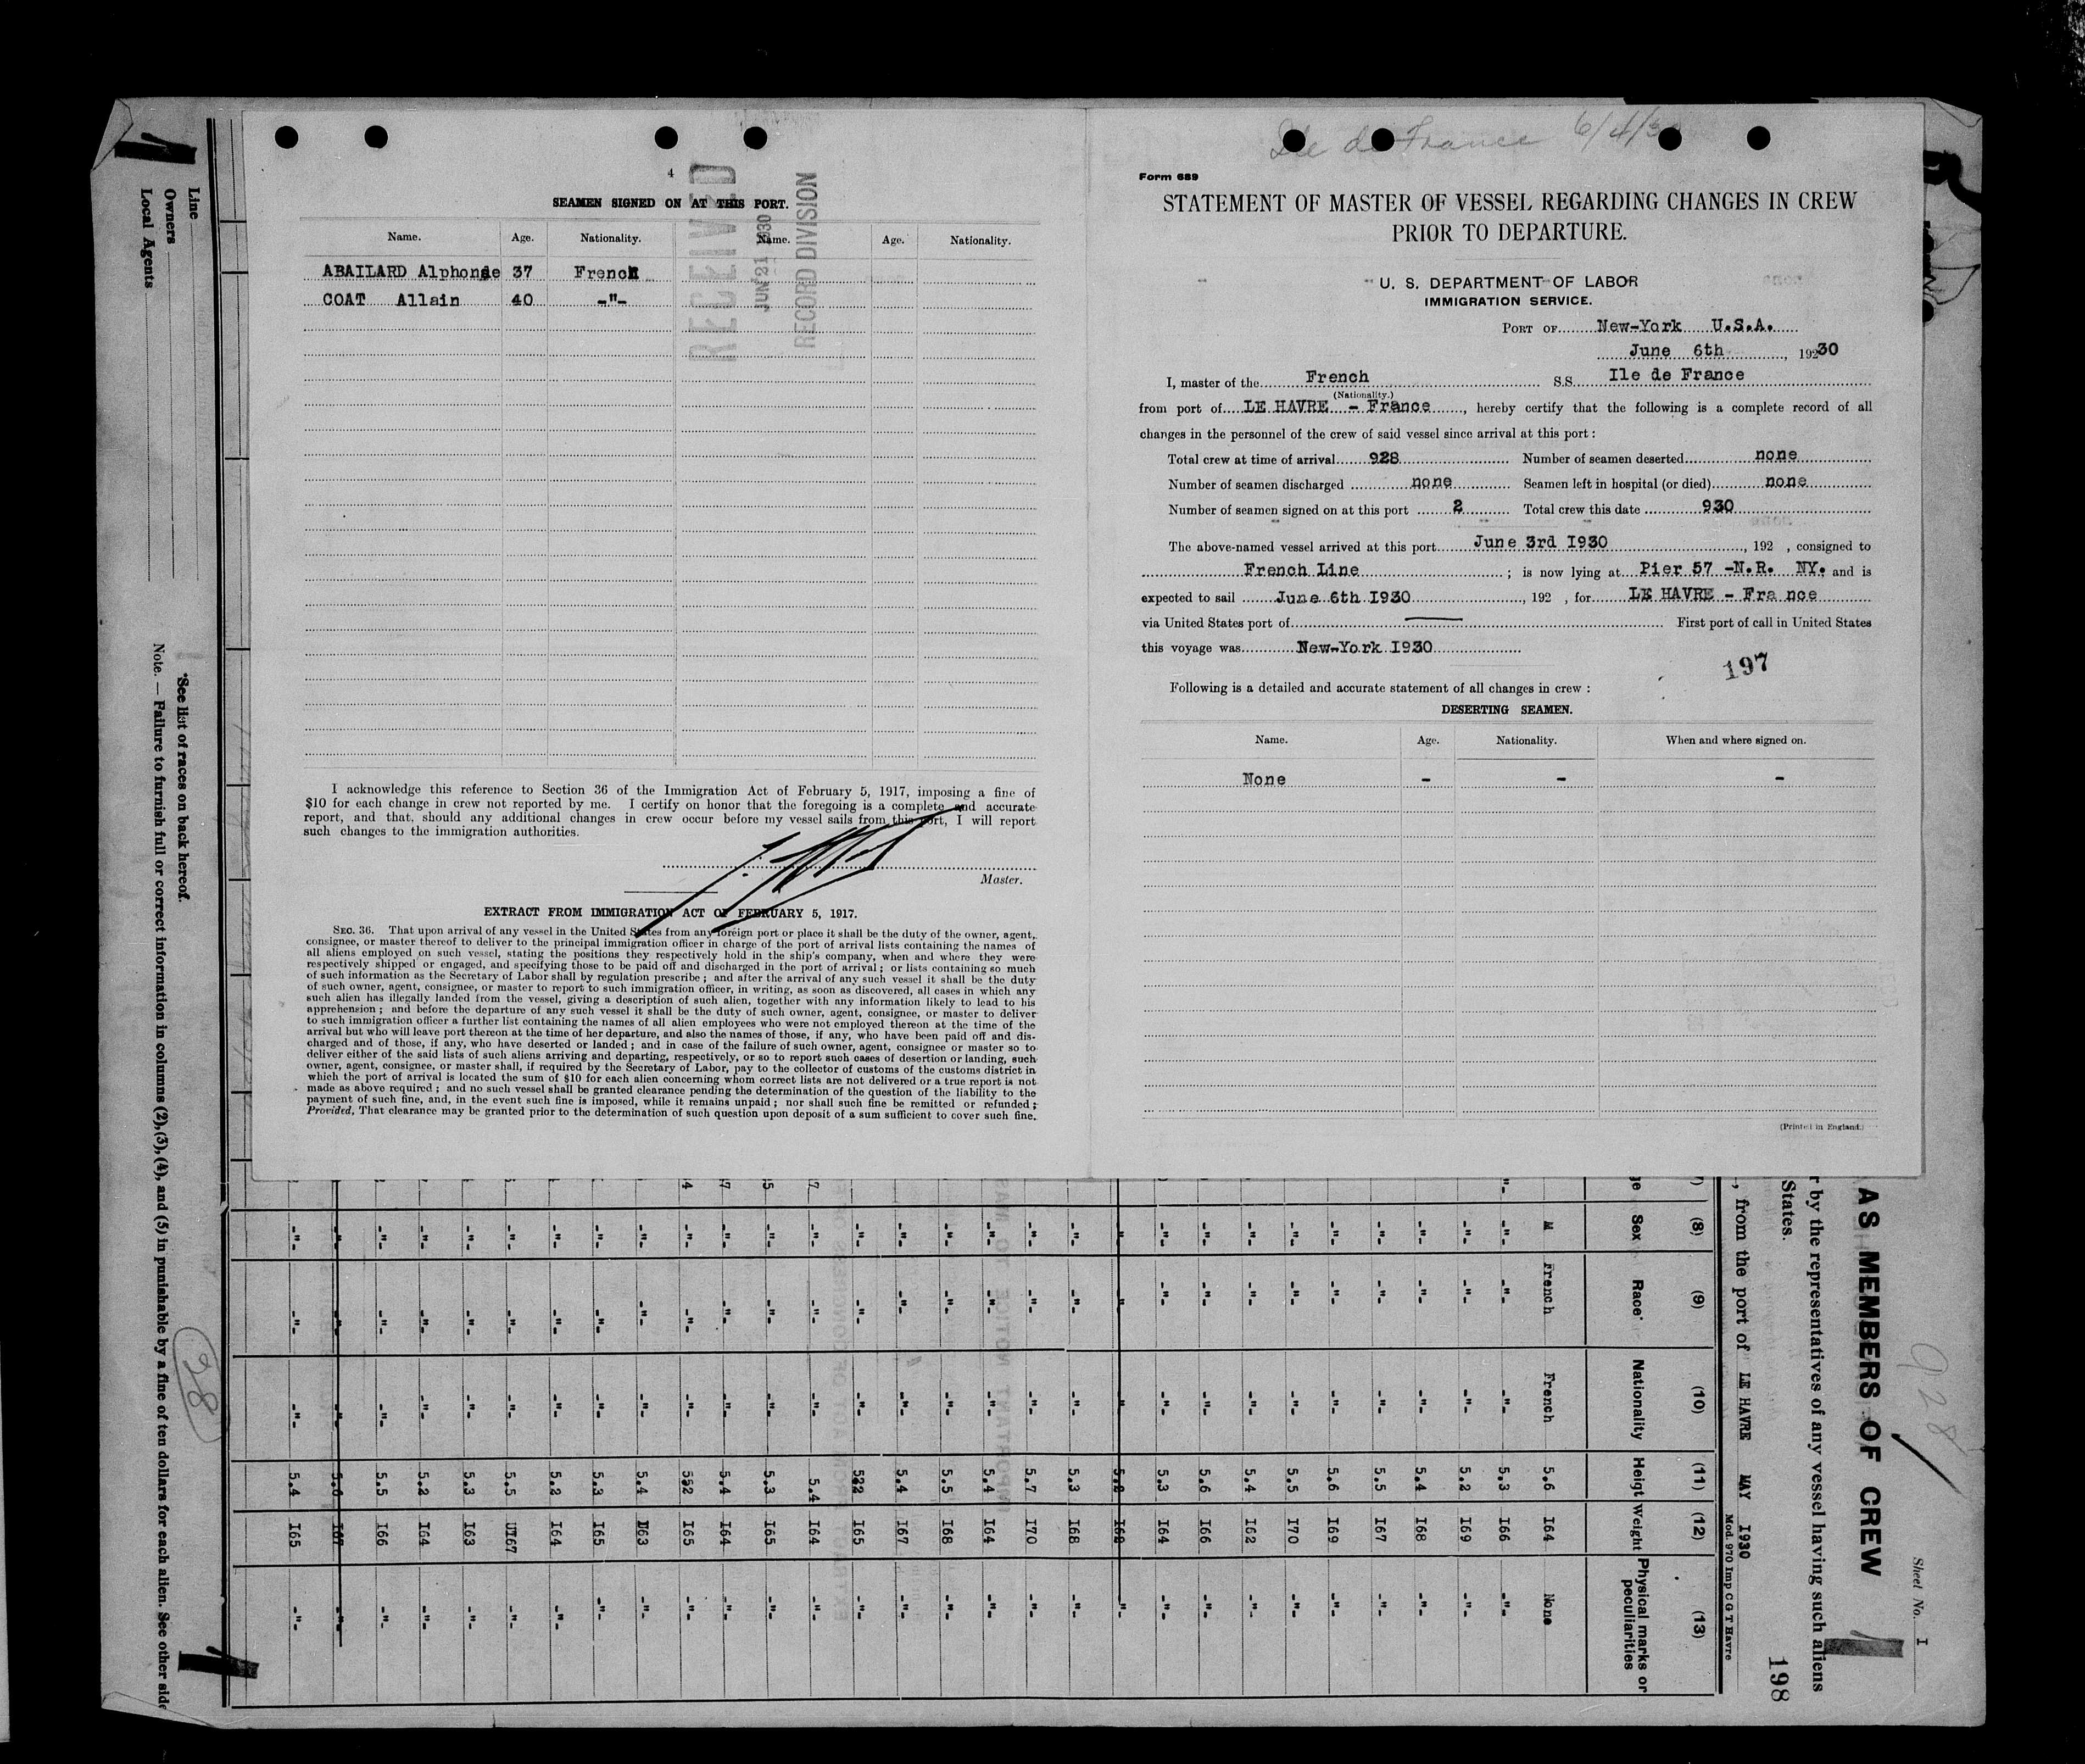 4
SEAMEN SIGNED ON AT THIS PORT.
Name. Age. Nationality. Name. Age. Nationality.
ABAILARD Alphonse 37 French
COAT Allain 40 -"-
RECEIVED
JUN 21 1930
RECORD DIVISION
I acknowledge this reference to Section 36 of the Immigration Act of February 5, 1917, imposing a fine of
$10 for each change in crew not reported by me. I certify on honor that the foregoing is a complete and accurate
report, and that, should any additional changes in crew occur before my vessel sails from this port, I will report
such changes to the immigration authorities.
Master.
EXTRACT FROM IMMIGRATION ACT OF FEBRUARY 5, 1917.
SEC. 36. That upon arrival of any vessel in the United States from any foreign port or place it shall be the duty of the owner, agent,
consignee, or master thereof to deliver to the principal immigration officer in charge of the port of arrival lists containing the names of
all aliens employed on such vessel, stating the positions they respectively hold in the ship's company, when and where they were
respectively shipped or engaged, and specifying those to be paid off and discharged in the port of arrival; or lists containing so much
of such information as the Secretary of Labor shall by regulation prescribe; and after the arrival of any such vessel it shall be the duty
of such owner, agent, consignee, or master to report to such immigration officer, in writing, as soon as discovered, all cases in which any
such alien has illegally landed from the vessel, giving a description of such alien, together with any information likely to lead to his
apprehension; and before the departure of any such vessel it shall be the duty of such owner, agent, consignee, or master to deliver
to such immigration officer a further list containing the names of all alien employees who were not employed thereon at the time of the
arrival but who will leave port thereon at the time of her departure, and also the names of those, if any, who have been paid off and dis-
charged and of those, if any, who have deserted or landed; and in case of the failure of such owner, agent, consignee or master so to
deliver either of the said lists of such aliens arriving and departing, respectively, or so to report such cases of desertion or landing, such
owner, agent, consignee, or master shall, if required by the Secretary of Labor, pay to the collector of customs of the customs district in
which the port of arrival is located the sum of $10 for each alien concerning whom correct lists are not delivered or a true report is not
made as above required; and no such vessel shall be granted clearance pending the determination of the question of the liability to the
payment of such fine, and, in the event such fine is imposed, while it remains unpaid; nor shall such fine be remitted or refunded;
Provided, That clearance may be granted prior to the determination of such question upon deposit of a sum sufficient to cover such fine.
Ile de France 6/4/30
Form 689
STATEMENT OF MASTER OF VESSEL REGARDING CHANGES IN CREW
PRIOR TO DEPARTURE.
U. S. DEPARTMENT OF LABOR
IMMIGRATION SERVICE.
PORT OF New-York U.S.A.
June 6th , 19230
I, master of the French S.S. Ile de France
(Nationality.)
from port of LE HAVRE - France , hereby certify that the following is a complete record of all
changes in the personnel of the crew of said vessel since arrival at this port:
Total crew at time of arrival 928 Number of seamen deserted none
Number of seamen discharged none Seamen left in hospital (or died) none
Number of seamen signed on at this port 2 Total crew this date 930
The above-named vessel arrived at this port June 3rd I930 , 192 , consigned to
French Line ; is now lying at Pier 57 -N.R. NY. and is
expected to sail June 6th I930 , 192 , for LE HAVRE - Fra nce
via United States port of First port of call in United States
this voyage was New-York I930
197
Following is a detailed and accurate statement of all changes in crew:
DESERTING SEAMEN.
Name. Age. Nationality. When and where signed on.
None - - -
(Printed in England.)
Line
Owners
Local Agents
*See list of races on back hereof.
Note. — Failure to furnish full or correct information in columns (2), (3), (4), and (5) in punishable by a fine of ten dollars for each alien. See other side
38
Sheet No. I
928
AS MEMBERS OF CREW
r by the representatives of any vessel having such aliens
States.
198
, from the port of LE HAVRE MAY I930
Mod. 970 Imp C G T Havre
(8) (9) (10) (11) (12) (13)
Sex Race* Nationality Heigt Weight Physical marks or peculiarities
M French French 5.6 I64 None
-"- -"- -"- 5.3 I66 -"-
-"- -"- -"- 5.2 I69 -"-
-"- -"- -"- 5.4 I68 -"-
-"- -"- -"- 5.5 I67 -"-
-"- -"- -"- 5.6 I69 -"-
-"- -"- -"- 5.5 I70 -"-
-"- -"- -"- 5.4 I62 -"-
-"- -"- -"- 5.6 I66 -"-
-"- -"- -"- 5.3 I64 -"-
-"- -"- -"- 5.3 I68 -"-
-"- -"- -"- 5.7 I70 -"-
-"- -"- -"- 5.4 I64 -"-
-"- -"- -"- 5.5 I68 -"-
-"- -"- -"- 5.4 I67 -"-
-"- -"- -"- 522 I65 -"-
-"- -"- -"- 5.4 I64 -"-
-"- -"- -"- 5.3 I65 -"-
-"- -"- -"- 5.4 I64 -"-
-"- -"- -"- 532 I65 -"-
-"- -"- -"- 5.4 -"-
-"- -"- -"- 5.3 I65 -"-
-"- -"- -"- 5.2 I64 -"-
-"- -"- -"- 5.5 -"-
-"- -"- -"- 5.3 I63 -"-
-"- -"- -"- 5.2 I64 -"-
-"- -"- -"- 5.5 I66 -"-
-"- -"- -"- 5.4 I65 -"-